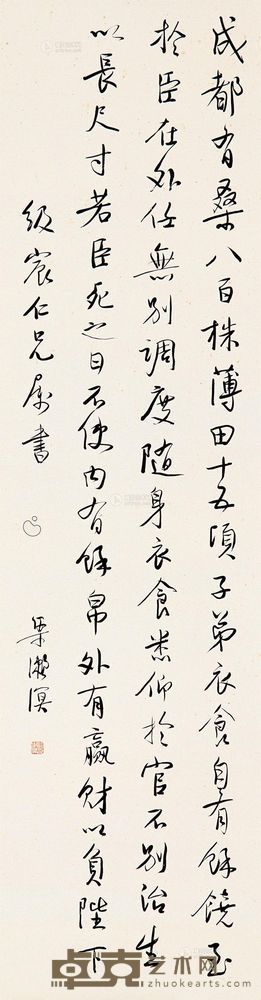 成都有桑八百株薄田十五頃子弟衣食自有餘饒至
於臣在外任無別調度隨身衣食悉仰於官不別治生
以長尺寸若臣死之日不使內有餘帛外有贏財以負陛下
級宸仁兄屬書
梁漱溟
卓克艺术网
zhuokearts.com